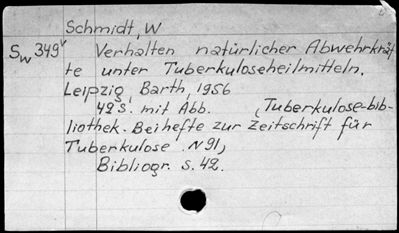 Schmidt, W
Sw 349v Verhalten natürlicher Abwehrkräf
te unter Tuberkuloseheilmitteln.
Leipzig, Barth, 1956
42 S. mit Abb. (Tuberkulose-bib-
liothek. Beihefte zur Zeitschrift für
Tuberkulose N 91)
Bibliogr. S. 42.